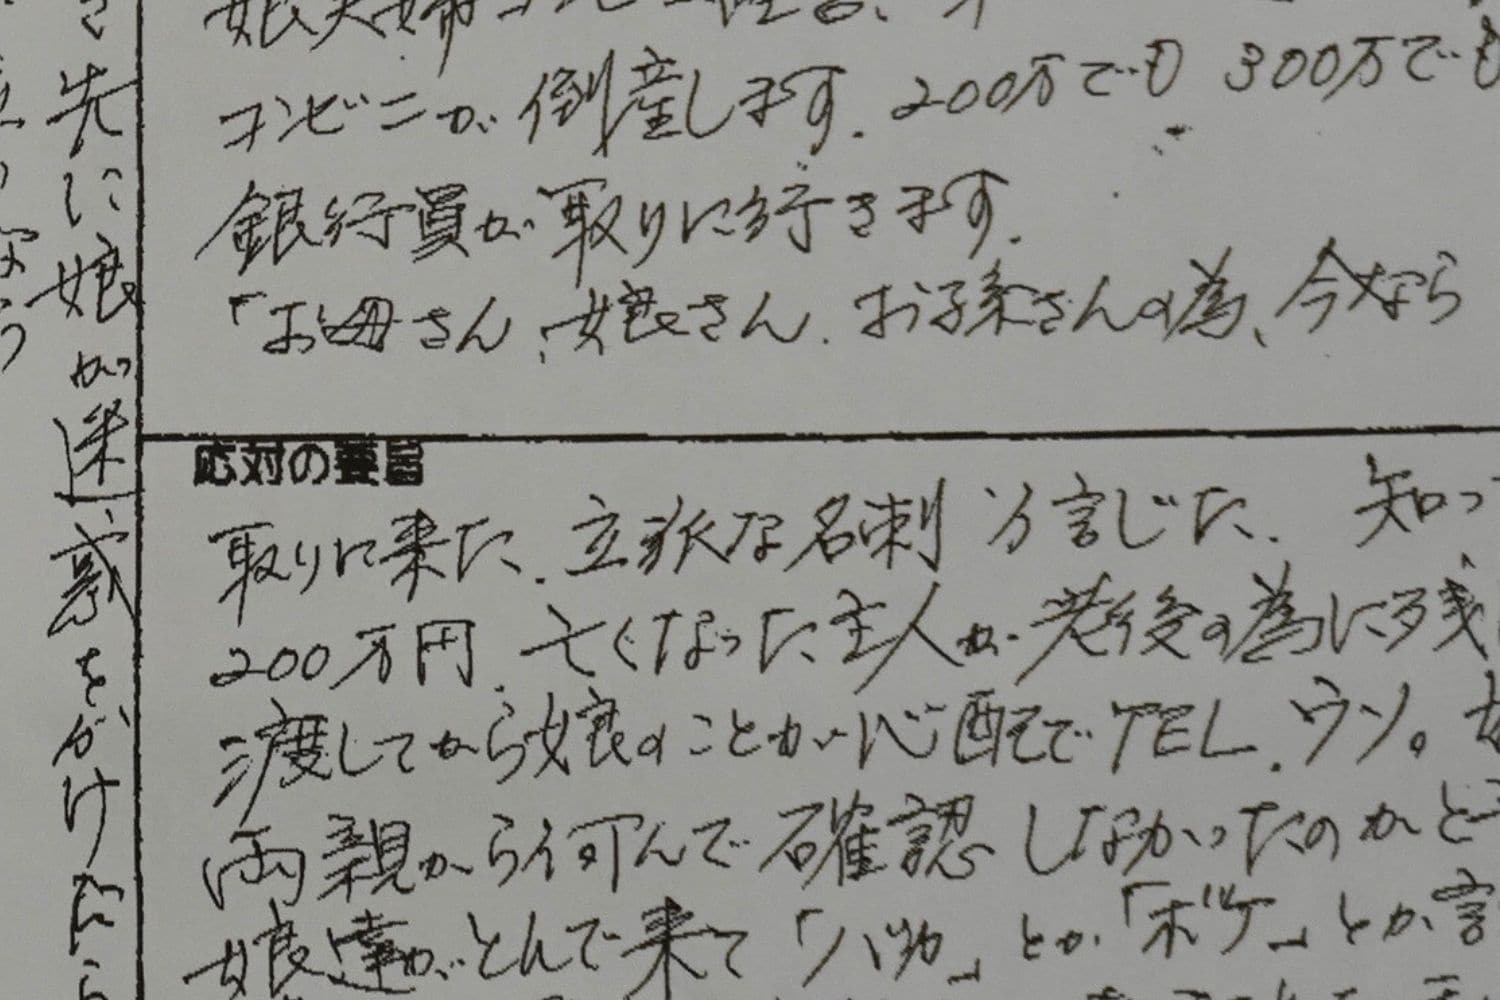 娘夫婦コンビニ経営、
コンビニが倒産します.200万でも300万でも
銀行員が取りに行きます.
「お母さん、娘さん.お孫さんの為、今なら
応対の要旨
取りに来た.立派な名刺 分信じた. 知っ
200万円.亡くなった主人が老後の為に残
渡してから娘のことが心配でTEL.ウソ。
両親から何んで確認しなかったのかと
娘達がとんで来て「バカ」とか「ボケ」とか言
先に娘が迷惑をかけたら